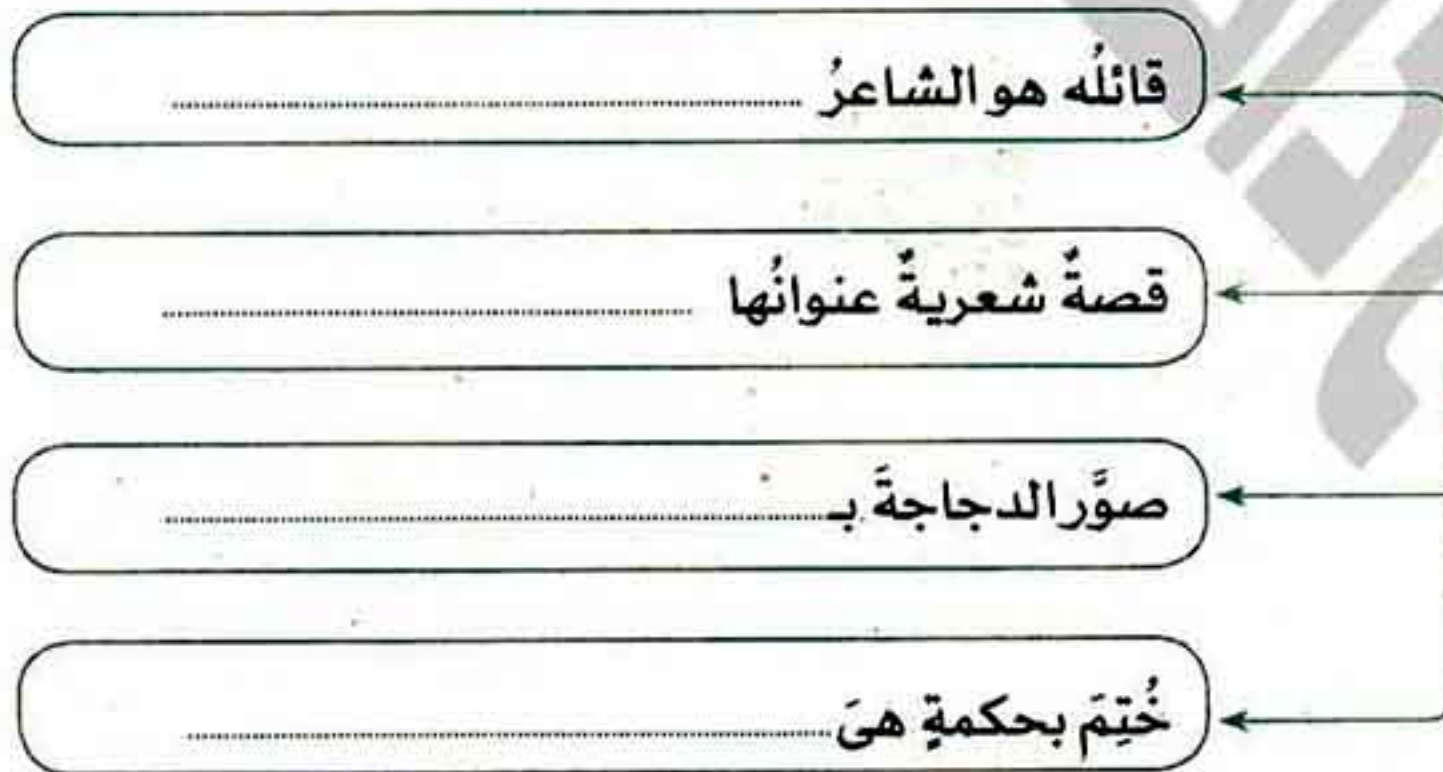 قائلُه هو الشاعرُ ........................
قصةٌ شعريةٌ عنوانُها ........................
صوَّر الدجاجةَ بـ ........................
خُتِمَ بحكمةٍ هىَ ........................